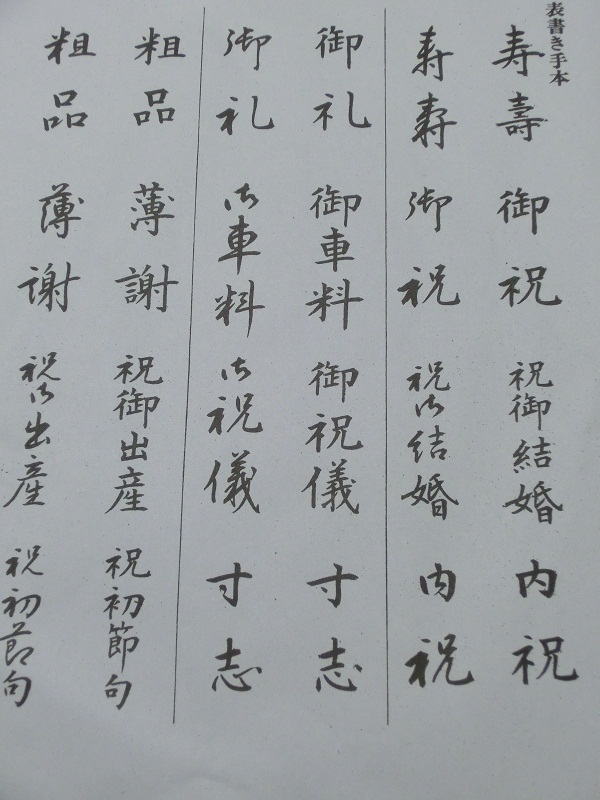 表書き手本
寿 壽 御祝 祝御結婚 内祝
寿 寿 御祝 祝御結婚 内祝
御礼 御車料 御祝儀 寸志
御礼 御車料 御祝儀 寸志
粗品 薄謝 祝御出産 祝初節句
粗品 薄謝 祝御出産 祝初節句